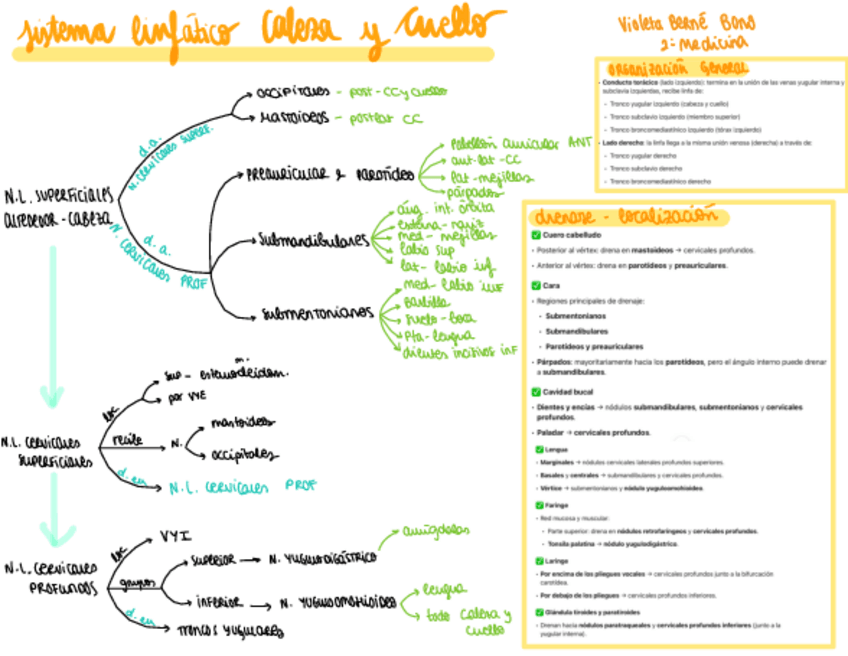 sistema linfático Cabeza y Cuello
Violeta Berné Bono
2º medicina
N.L. SUPERFICIALES
ALREDEDOR - CABEZA
d.a.
N. CERVICALES SUPERF.
OCCIPITALES - post - CC y cuello
MASTOIDEOS - postlat CC
d.a.
N. CERVICALES PROF
PREAURICULAR & PAROTÍDEO
Pabellón auricular ANT
ant-lat-CC
lat-mejillas
párpados
submandibulares
áng. int. órbita
externa-nariz
med-mejillas
labio sup
lat-labio inf
submentonianos
med-labio inf
barbilla
suelo-boca
pta-lengua
dientes incisivos inf
N.L. CERVICALES
SUPERFICIALES
loc
sup-
por VYE
recibe
N.
mastoideos
occipitales
d. en
N.L. CERVICALES PROF
N.L. CERVICALES
PROFUNDOS
loc
VYI
grupos
superior
N. YUGULODIGÁSTRICO
amígdalas
inferior
N. YUGULOOMOHIOIDEO
lengua
todo cabeza y
cuello
d. en
TRONCOS YUGULARES
ORGANIZACIÓN GENERAL
• Conducto torácico (lado izquierdo): termina en la unión de las venas yugular interna y
subclavia izquierdas, recibe linfa de:
• Tronco yugular izquierdo (cabeza y cuello)
• Tronco subclavio izquierdo (miembro superior)
• Tronco broncomediastínico izquierdo (tórax izquierdo)
• Lado derecho: la linfa llega a la misma unión venosa (derecha) a través de:
• Tronco yugular derecho
• Tronco subclavio derecho
• Tronco broncomediastínico derecho
drenaje - localización
✅ Cuero cabelludo
• Posterior al vértex: drena en mastoideos → cervicales profundos.
• Anterior al vértex: drena en parotídeos y preauriculares.
✅ Cara
• Regiones principales de drenaje:
• Submentonianos
• Submandibulares
• Parotídeos y preauriculares
• Párpados: mayoritariamente hacia los parotídeos, pero el ángulo interno puede drenar
a submandibulares.
✅ Cavidad bucal
• Dientes y encías → nódulos submandibulares, submentonianos y cervicales
profundos.
• Paladar → cervicales profundos.
✅ Lengua
• Marginales → nódulos cervicales laterales profundos superiores.
• Basales y centrales → submandibulares y cervicales profundos.
• Vértice → submentonianos y nódulo yuguloomohioideo.
✅ Faringe
• Red mucosa y muscular:
• Parte superior: drena en nódulos retrofaríngeos y cervicales profundos.
• Tonsila palatina → nódulo yugulodigástrico.
✅ Laringe
• Por encima de los pliegues vocales → cervicales profundos junto a la bifurcación
carotídea.
• Por debajo de los pliegues → cervicales profundos inferiores.
✅ Glándula tiroides y paratiroides
• Drenan hacia nódulos paratraqueales y cervicales profundos inferiores (junto a la
yugular interna).